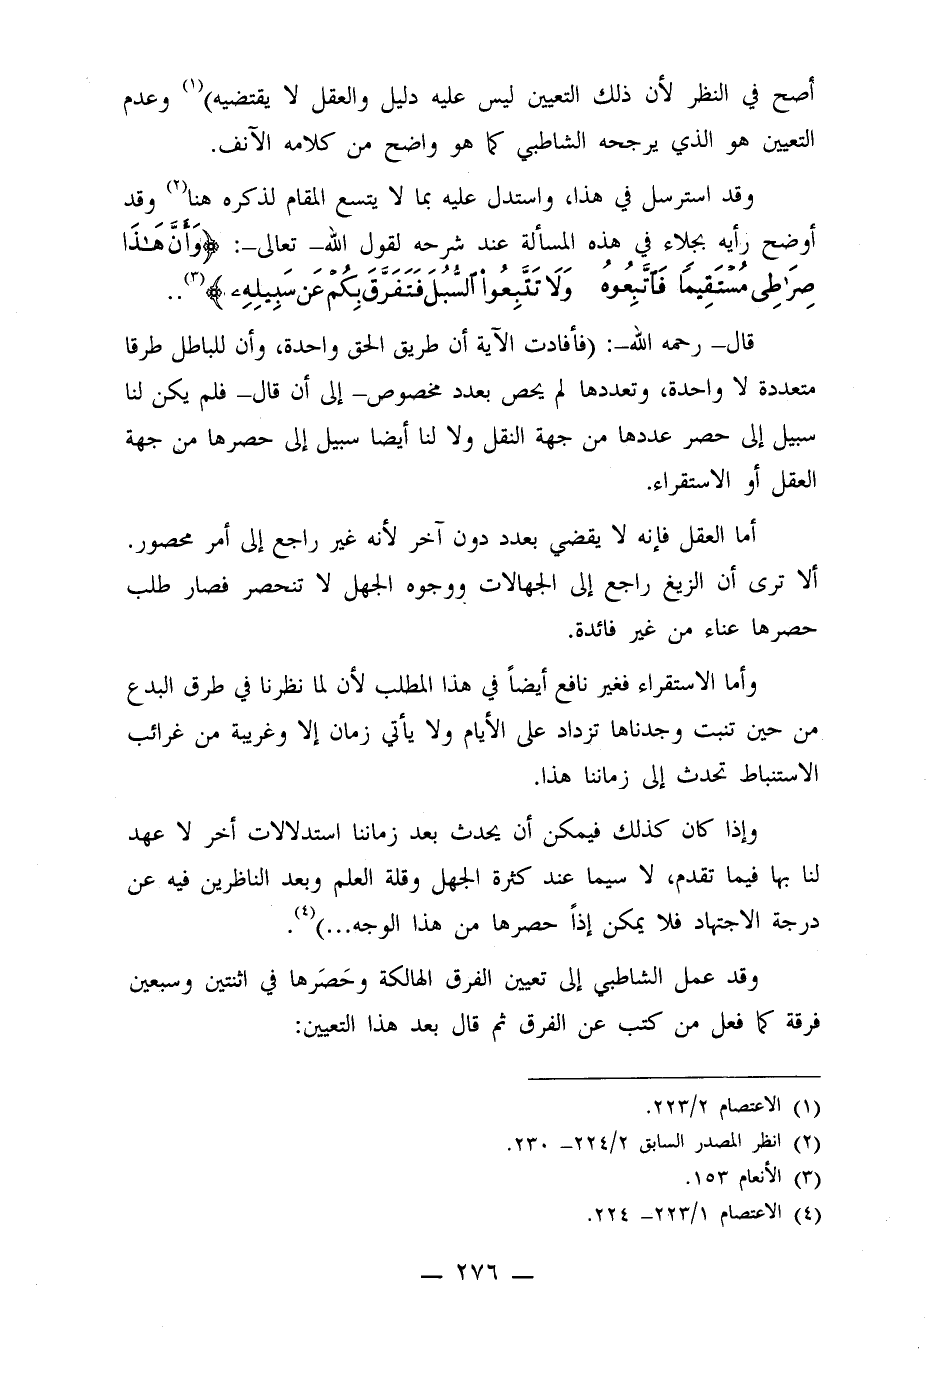 أصح في النظر لأن ذلك التعيين ليس عليه دليل والعقل لا يقتضيه)(١) وعدم
التعيين هو الذي يرجحه الشاطبي كما هو واضح من كلامه الآنف.
وقد استرسل في هذا، واستدل عليه بما لا يتسع المقام لذكره هنا(٢) وقد
أوضح رأيه بجلاء في هذه المسألة عند شرحه لقول الله- تعالى-: ﴿وَأَنَّ هَٰذَا
صِرَٰطِى مُسْتَقِيمًا فَٱتَّبِعُوهُ وَلَا تَتَّبِعُوا۟ ٱلسُّبُلَ فَتَفَرَّقَ بِكُمْ عَن سَبِيلِهِۦ﴾(٣)..
قال- رحمه الله-: (فأفادت الآية أن طريق الحق واحدة، وأن للباطل طرقا
متعددة لا واحدة، وتعددها لم يحص بعدد مخصوص- إلى أن قال- فلم يكن لنا
سبيل إلى حصر عددها من جهة النقل ولا لنا أيضا سبيل إلى حصرها من جهة
العقل أو الاستقراء.
أما العقل فإنه لا يقضي بعدد دون آخر لأنه غير راجع إلى أمر محصور.
ألا ترى أن الزيغ راجع إلى الجهالات ووجوه الجهل لا تنحصر فصار طلب
حصرها عناء من غير فائدة.
وأما الاستقراء فغير نافع أيضاً في هذا المطلب لأن لما نظرنا في طرق البدع
من حين تنبت وجدناها تزداد على الأيام ولا يأتي زمان إلا وغريبة من غرائب
الاستنباط تحدث إلى زماننا هذا.
وإذا كان كذلك فيمكن أن يحدث بعد زماننا استدلالات أخر لا عهد
لنا بها فيما تقدم، لا سيما عند كثرة الجهل وقلة العلم وبعد الناظرين فيه عن
درجة الاجتهاد فلا يمكن إذاً حصرها من هذا الوجه...)(٤).
وقد عمل الشاطبي إلى تعيين الفرق الهالكة وحَصَرَها في اثنتين وسبعين
فرقة كما فعل من كتب عن الفرق ثم قال بعد هذا التعيين:
(١) الاعتصام ٢/٢٢٣.
(٢) انظر المصدر السابق ٢/٢٢٤- ٢٣٠.
(٣) الأنعام ١٥٣.
(٤) الاعتصام ١/٢٢٣- ٢٢٤.
— ٢٧٦ —